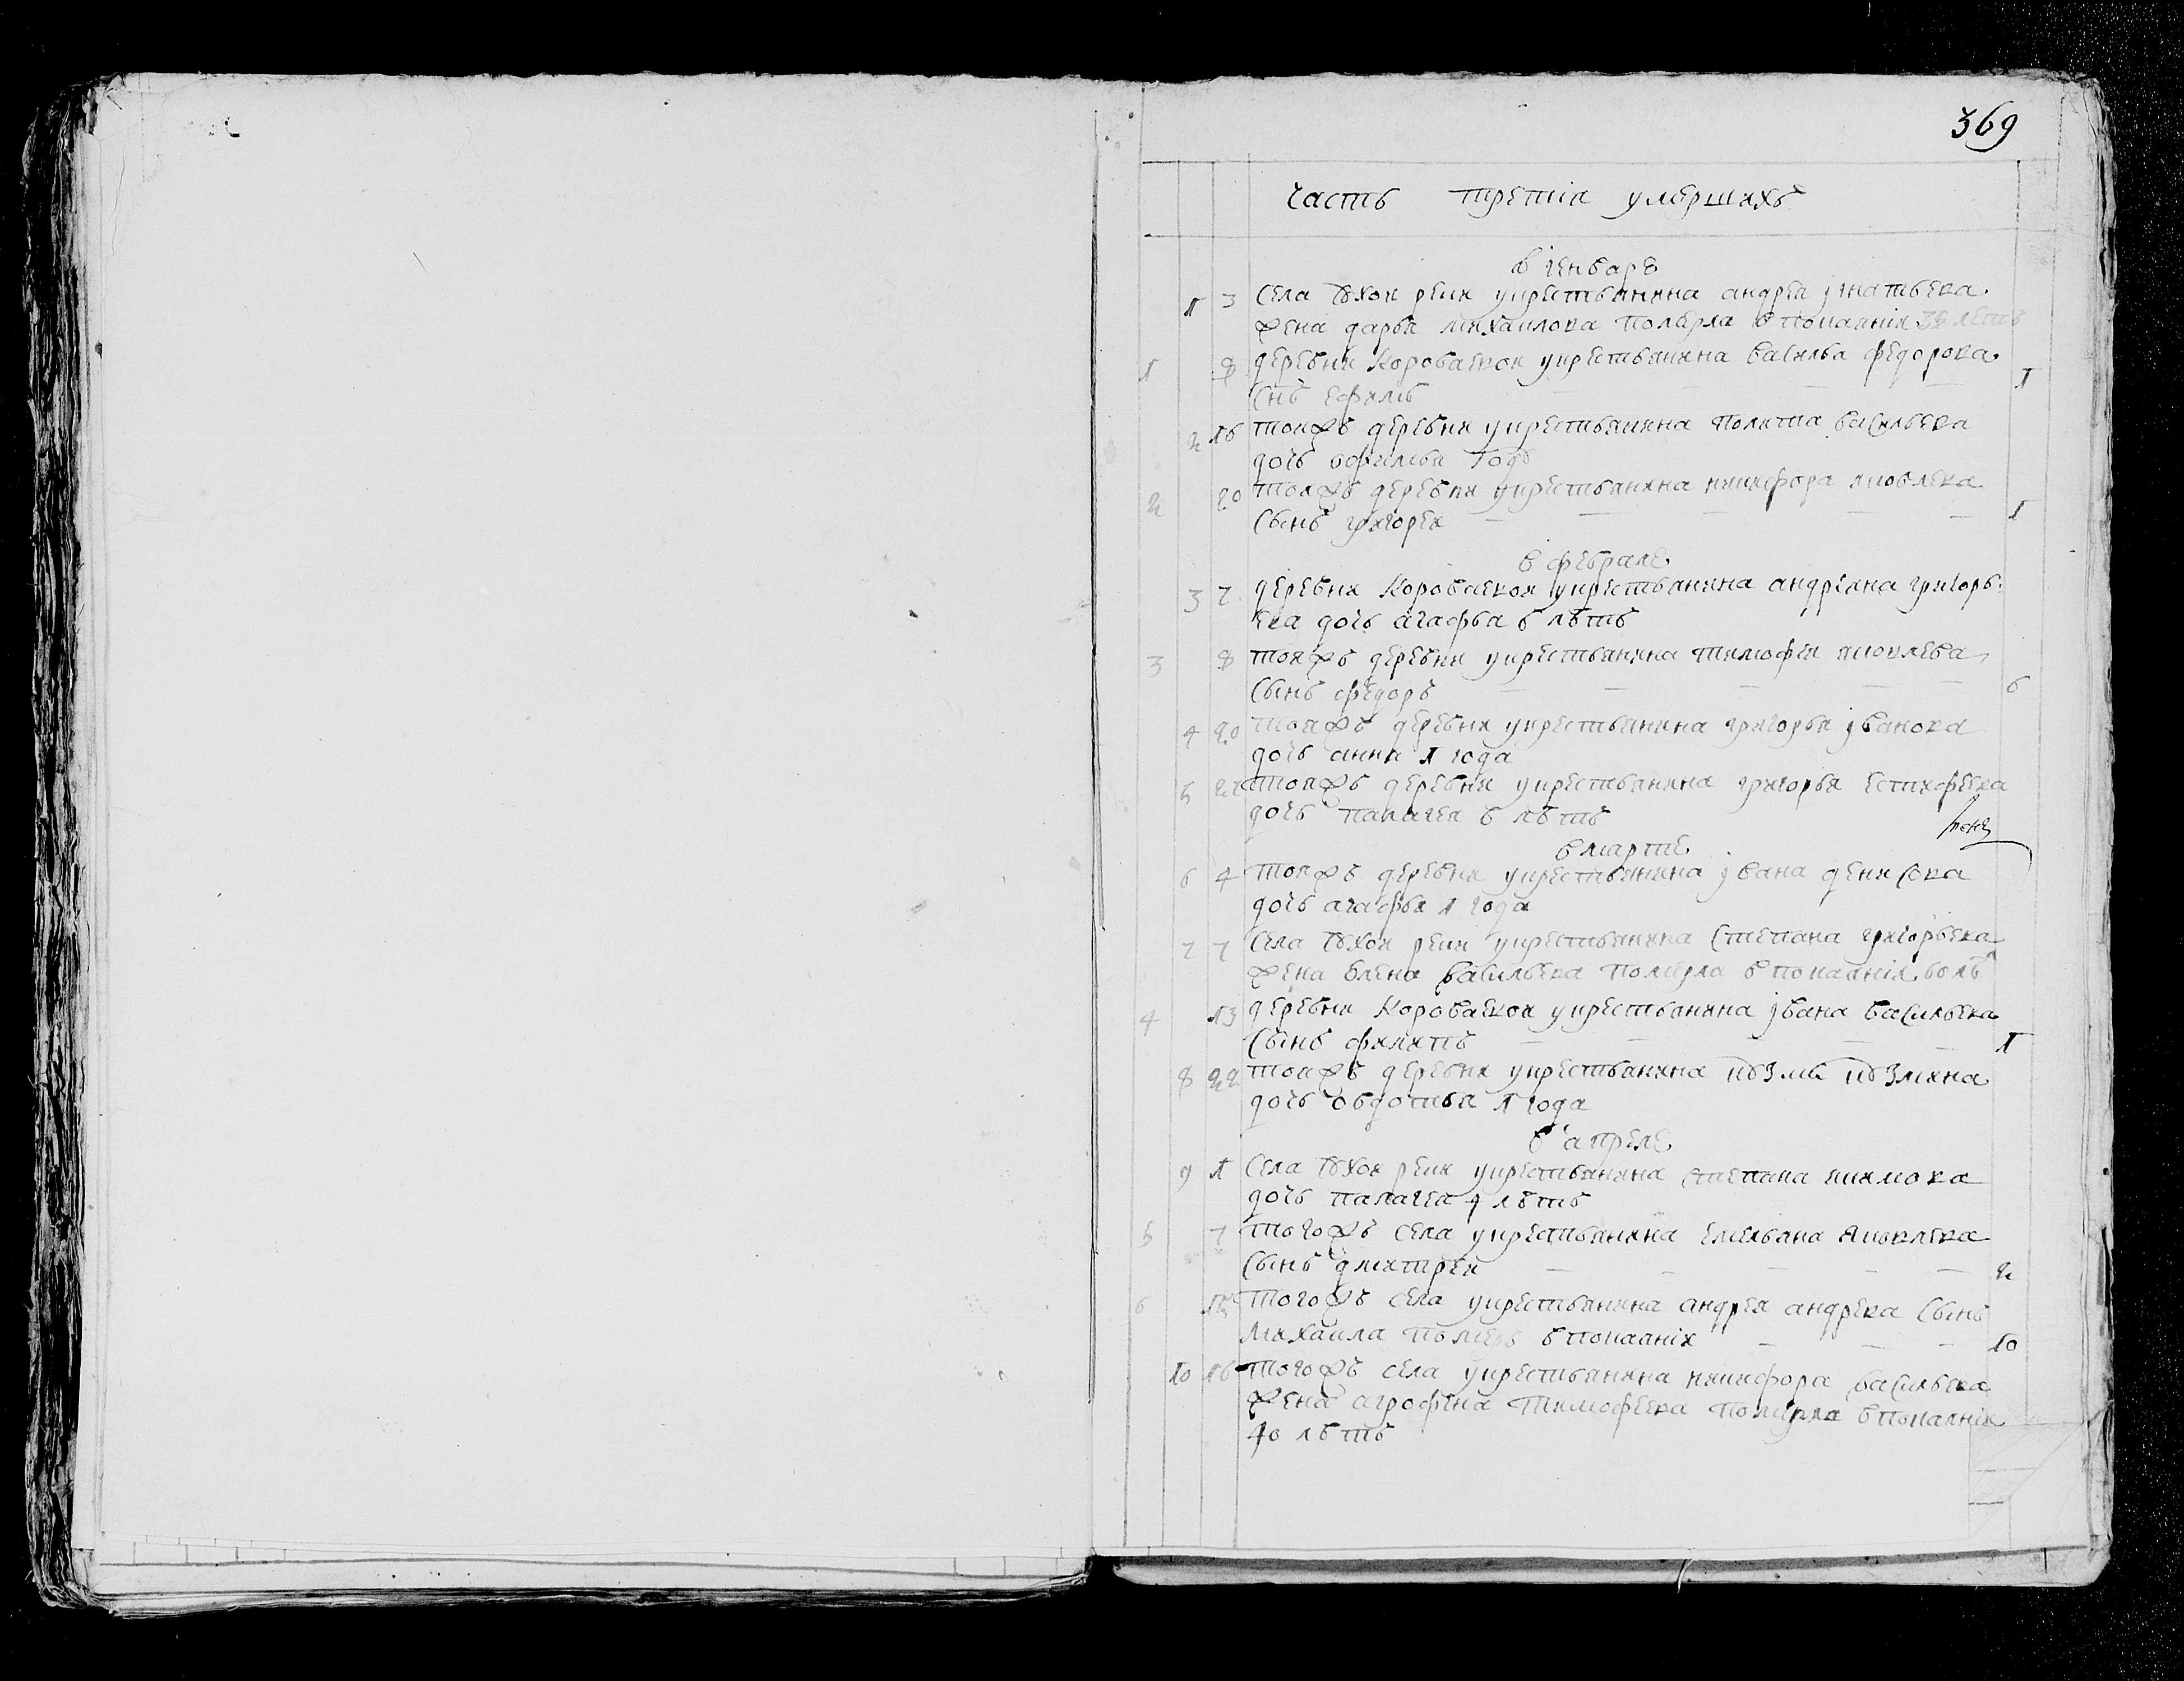 369
Часть третиа умершихъ
в генваре
1 3 села тихои реки укрестьянина андреа игнатьева
жена дарьа михаилова померла в покаании 38 летъ
1 8 деревни короваевои укрестьянина василья федорова
снъ ефимъ 1
2 16 тоижъ деревни укрестьянина полита васильева
дочь офимьа годъ
2 20 тоижъ деревни укрестьянина никифора яковлева
сынъ григореи 1
в феврале
3 7 деревни короваевои укрестьянина андреана григорь
ева дочь агафьа 6 лѣтъ
3 8 тоижъ деревни укрестьянина тимофеа яковлева
сынъ федоръ 6
4 20 тоижъ деревни укрестьянина григорьа иванова
дочь анна 1 года
5 тоижъ деревни укрестьянина григорья естифеева
дочь палагеа 6 лѣтъ
в марте
6 4 тоижъ деревни укрестьянина ивана денисова
дочь агафьа 1 года
7 7 села тихои реки укрестьянина степана григорьева
жена елена васильева померла в покаании 60 лѣ
4 13 деревни короваевои укрестьянина ивана васильева
сынъ филипъ 1
8 22 тоижъ деревни укрестьянина кузмы кузмина
дочь овдотьа 1 года
в апреле
9 1 села тихои реки укрестьянина степана екимова
дочь палагеа 4 лѣтъ
5 7 тогожъ села укрестьянина емельана яковлева
сынъ дмитреи 2
6 тогожъ села укрестьянина андреа андрева сынъ
михаила померъ в покаании 10
10 16 тогожъ села укрестьянина никифора васильева
жена агрофена тимофеева померла в покаании
40 лѣтъ